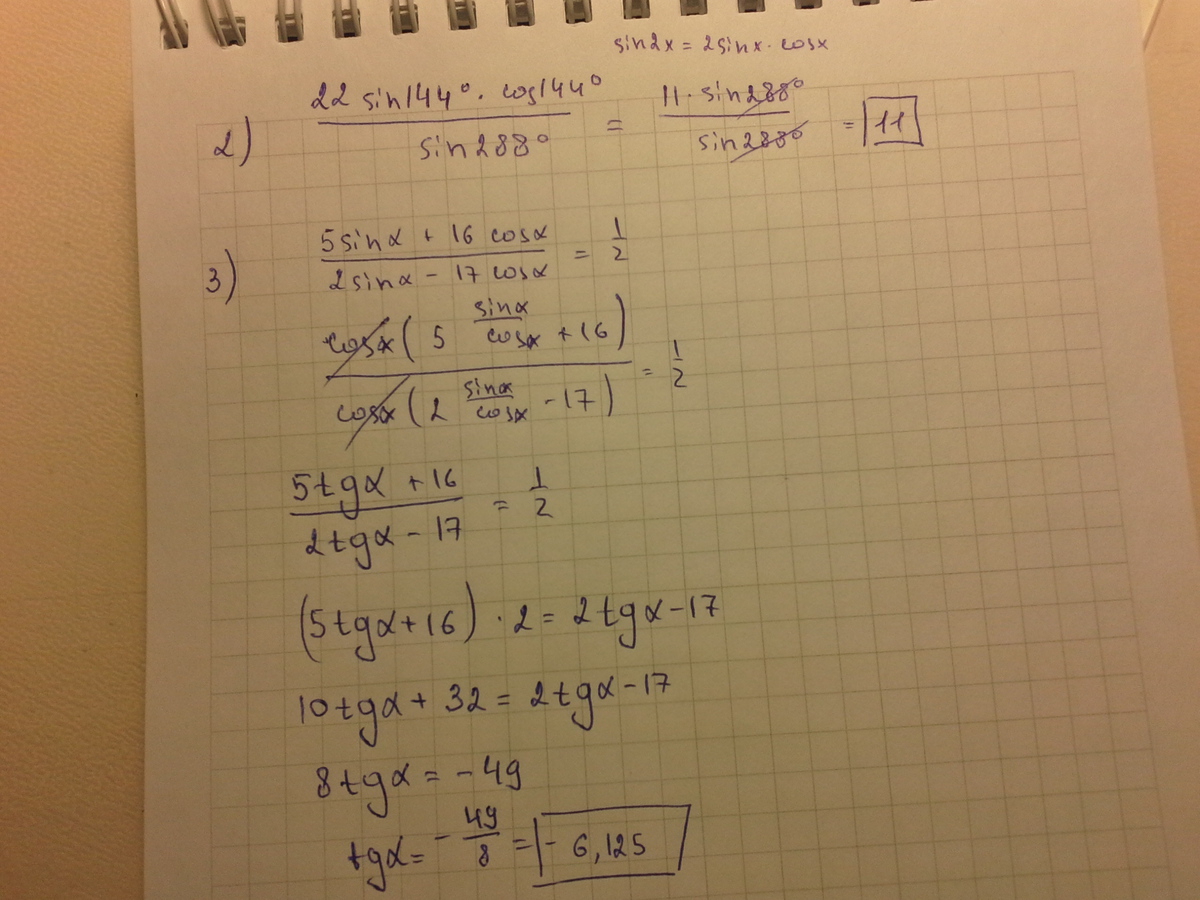 sin2x = 2sinx · cosx
2) (22 sin144° · cos144°) / (sin288°) = (11 · sin288°) / (sin288°) = 11
3) (5sinα + 16 cosα) / (2sinα - 17 cosα) = 1/2
(cosα(5 sinα/cosα + 16)) / (cosα(2 sinα/cosα - 17)) = 1/2
(5tgα + 16) / (2tgα - 17) = 1/2
(5tgα + 16) · 2 = 2tgα - 17
10tgα + 32 = 2tgα - 17
8tgα = - 49
tgα = - 49/8 = - 6,125